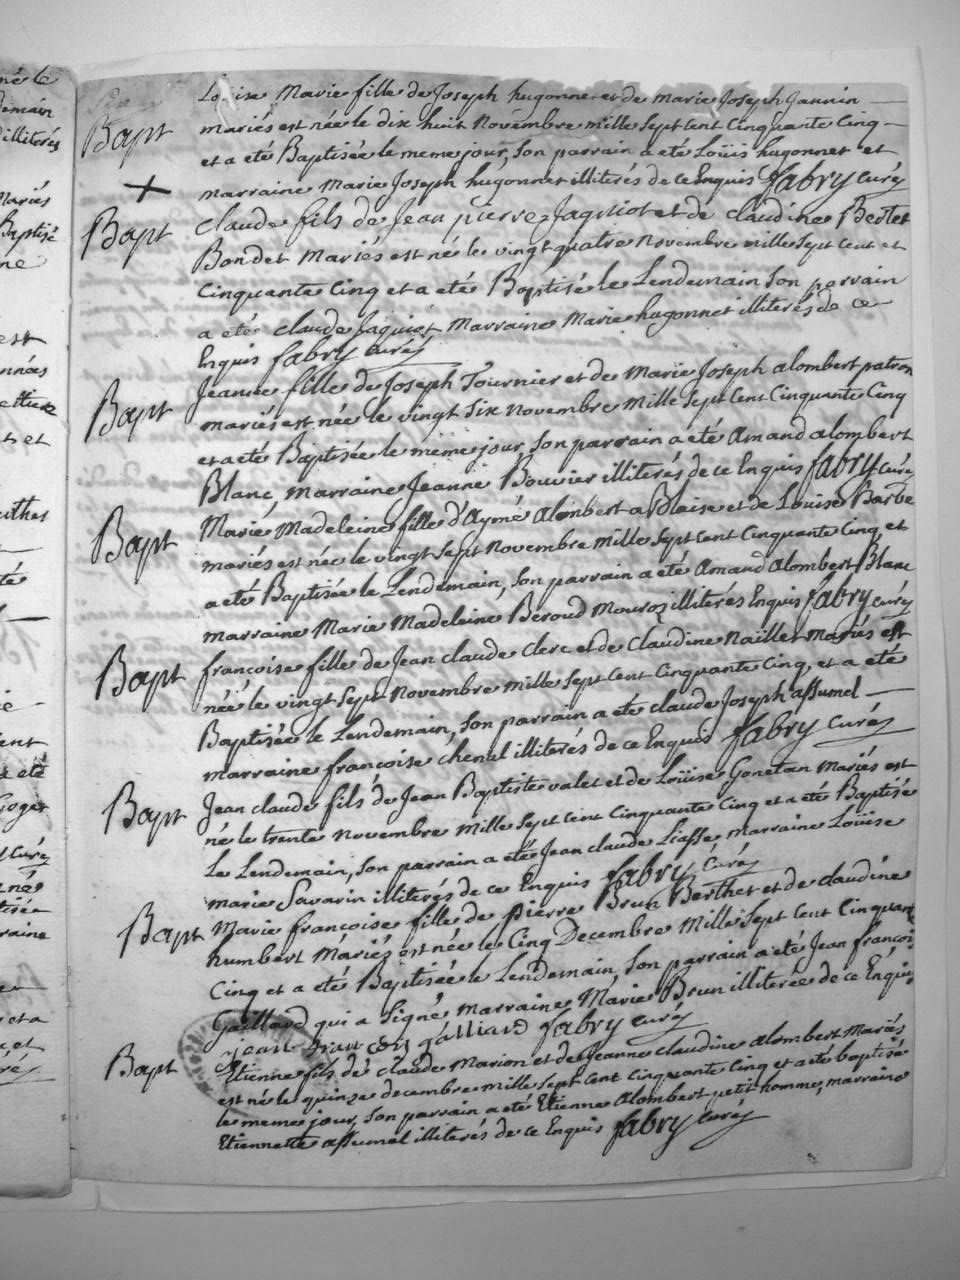 Bapt
Louise Marie fille de Joseph hugonnet et de marie Joseph Jannin
mariés est née le dix huit Novembre mille Sept Cent Cinquante Cinq
et a eté Baptisée le meme jour, Son parrain a eté Loüis hugonnet et
marraine Marie Joseph hugonnet illiterés de ce Enquis fabry curé
Bapt
Claude fils de Jean pierre Jaquiot et de claudine Beolet
Bondet Mariés est né le vingt quatre Novembre mille Sept Cent et
Cinquante Cinq et a eté Baptisé le Lendemain Son parrain
a eté claude Jaquiot Marraine Marie hugonnet illiterés de ce
Enquis fabry curé
Bapt
Jeanne fille de Joseph Tournier et de Marie Joseph alombert patron
mariés est née le vingt Six Novembre Mille Sept Cent Cinquante Cinq
et a eté Baptisée le même jour, Son parrain a eté Amand alombert
Blanc, marraine Jeanne Bouvier illiterés de ce Enquis fabry curé
Bapt
Marie Madeleine fille d'Aymé Alombert a Blaise et de Louise Barbe
mariés est née le vingt Sept Novembre Mille Sept Cent Cinquante Cinq, et
a eté Baptisée le Lendemain, Son parrain a eté Amand Alombert Blanc
marraine Marie Madeleine Beroud Mouroz illiterés Enquis fabry curé
Bapt
françoise fille de Jean claude Clerc et de Claudine Naillet Mariés est
née le vingt Sept Novembre mille Sept Cent Cinquante Cinq, et a eté
Baptisée le Lendemain, Son parrain a eté claude Joseph assumel
marraine françoise chenel illiterés de ce Enquis fabry curé
Bapt
Jean claude fils de Jean Baptiste valet et de Loüise Gonetan Mariés est
né le trente Novembre mille Sept Cent Cinquante Cinq et a eté Baptisé
Le Lendemain, Son parrain a eté Jean claude Liasse marraine Loüise
marie Savarin illiterés de ce Enquis fabry curé
Bapt
Marie françoise fille de pierre Brun Berthet et de claudine
humbert Mariés est née le Cinq Decembre Mille Sept Cent Cinquante
Cinq et a eté Baptisée le Lendemain, Son parrain a eté Jean françois
Gailland qui a Signé marraine Marie Brun illiterée de ce Enquis
jean francois galliard fabry curé
Bapt
Etienne fils de claude Marion et de Jeanne claudine alombert Mariés
est né le quinze decembre mille Sept Cent Cinquante Cinq et a eté baptisé
le meme jour, Son parrain a eté Etienne Alombert petit homme, marraine
Etiennette assumel illiterés de ce Enquis fabry curé